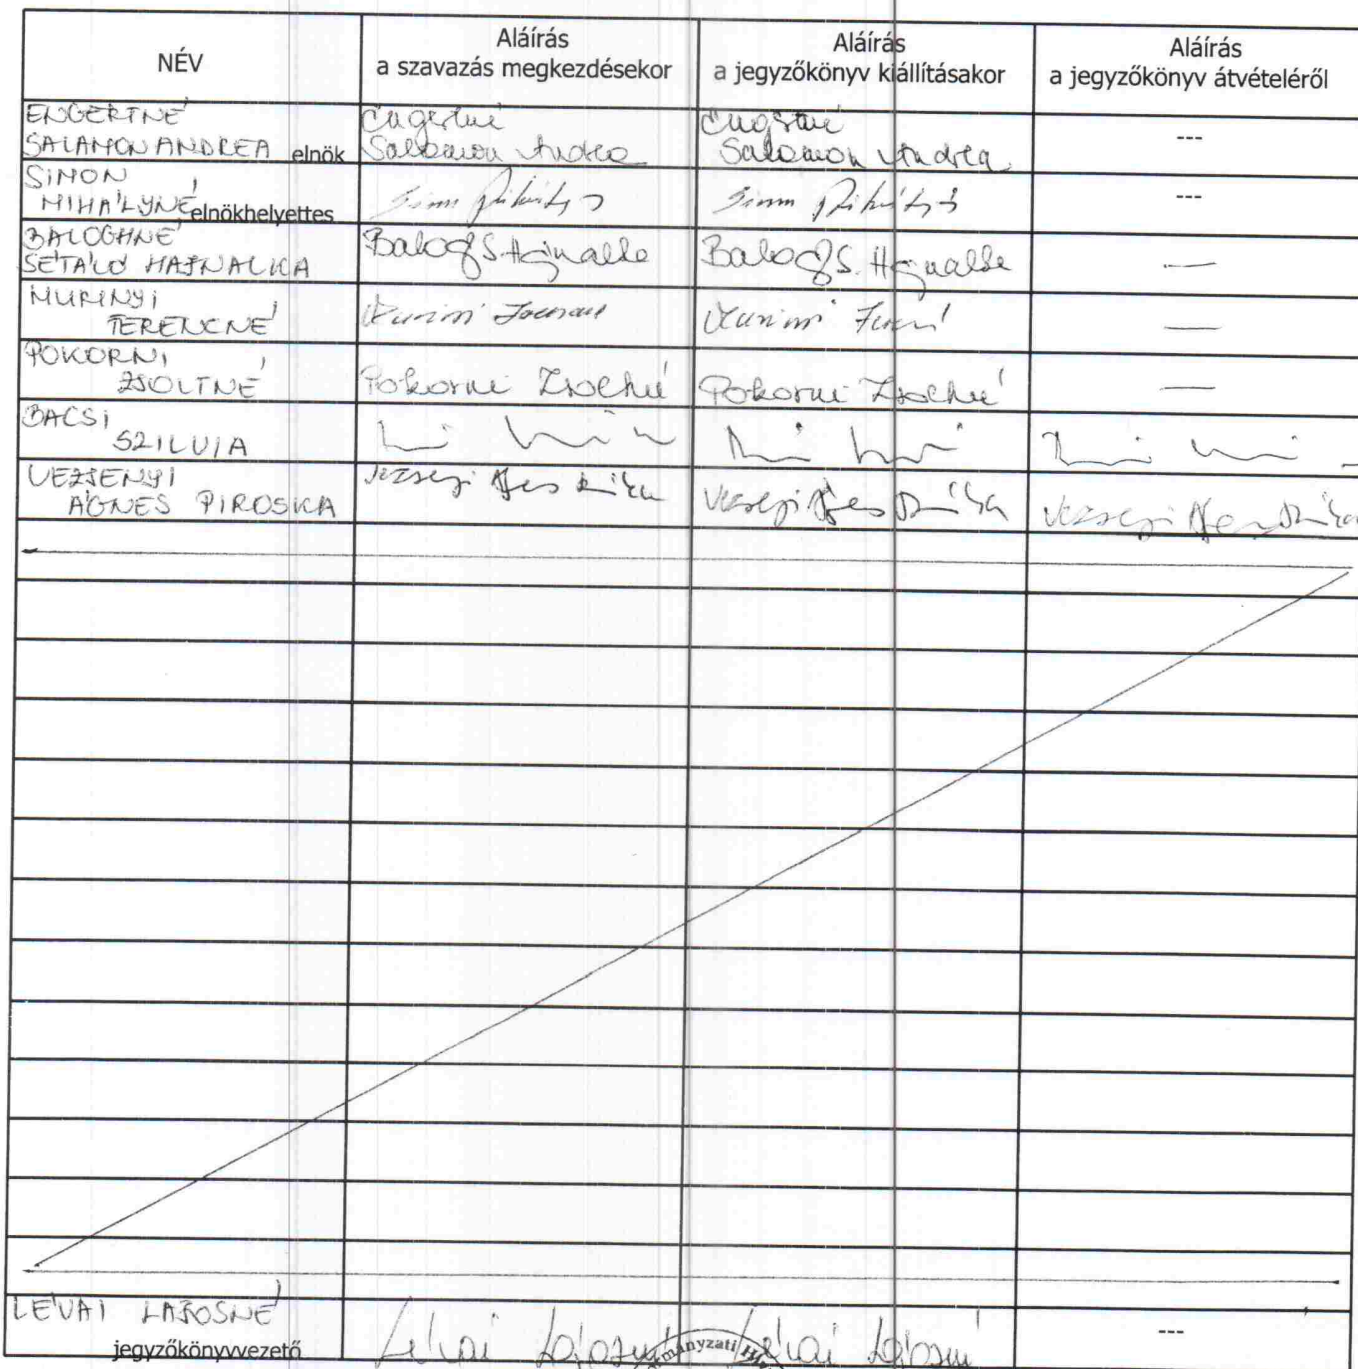 NÉV
Aláírás
a szavazás megkezdésekor
Aláírás
a jegyzőkönyv kiállításakor
Aláírás
a jegyzőkönyv átvételéről
ENGERTNÉ
SALAMON ANDREA elnök
Engertné
Salamon Andrea
Engertné
Salamon Andrea
---
SIMON
MIHÁLYNÉ elnökhelyettes
Simon Mihályné
Simon Mihályné
---
BALOGHNÉ
SÉTÁLÓ HAJNALKA
Balogh S. Hajnalka
Balogh S. Hajnalka
—
MURINYI
FERENCNÉ
Murinyi Ferencné
Murinyi
—
POKORNI
ZSOLTNÉ
Pokorni Zsoltné
Pokorni Zsoltné
—
BACSI
SZILVIA
VEZSENYI
ÁGNES PIROSKA
LÉVAI LAJOSNÉ
jegyzőkönyvvezető
Lévai Lajosné
Lévai Lajosné
---